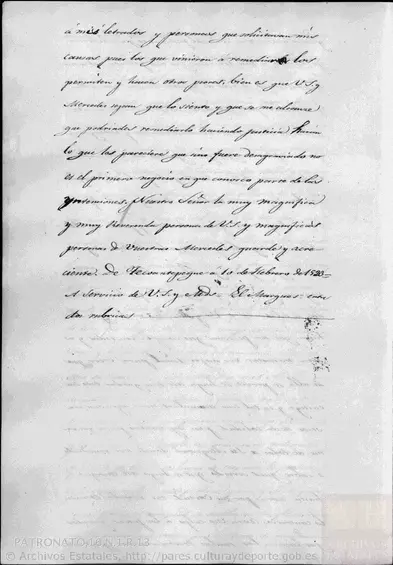 á mis letrados y personas que solicitavan mis
causas pues los que vinieron á remediar los
permiten y hacen otros peores, bien es que V.S. y
Mercedes sepan que lo siento y que se me alcanza
que podriades remediarlo haciendo justicia
lo que les pareciere que no fuere derogando no
es el primero negocio en que conozco parte de las
Nuestro Señor la muy magnifica
y muy Reverenda persona de V.S. y magnificas
personas de Vuestras Mercedes guarde y acre-
ciente. De á 10 de Febrero de
A Servicio de V.S. y Mds. El Marques entre
dos rubricas
PATRONATO,182,1,R.13
© Archivos Estatales, http://pares.culturaydeporte.gob.es